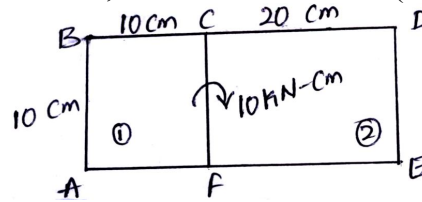 B 10 Cm C 20 Cm D
10 Cm 10 KN-Cm
① ②
A F E